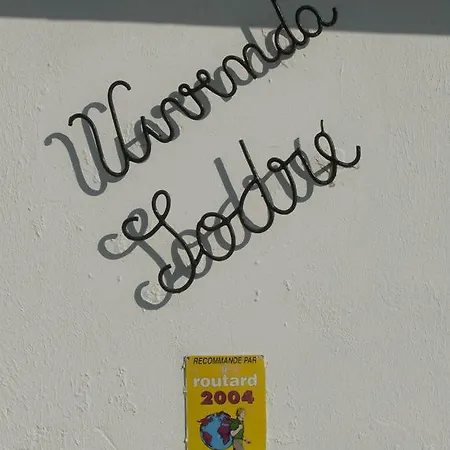 Vivenda
Sodré
RECOMMANDÉ PAR
routard
2004